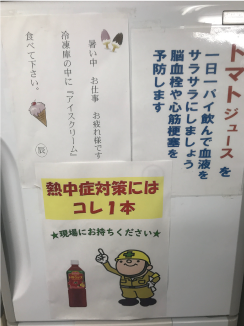 トマトジュースを
一日一パイ飲んで血液を
サラサラにしましょう
脳血栓や心筋梗塞を
予防します
暑い中 お仕事 お疲れ様です
冷凍庫の中に『アイスクリーム』
食べて下さい。
熱中症対策には
コレ1本
★現場にお持ちください★